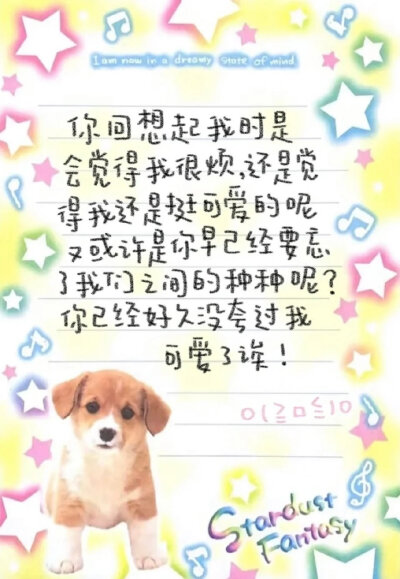 I am now in a dreamy state of mind
你回想起我时是
会觉得我很烦,还是觉
得我还是挺可爱的呢
又或许是你早已经要忘
了我们之间的种种呢?
你已经好久没夸过我
可爱了诶!
Stardust
Fantasy